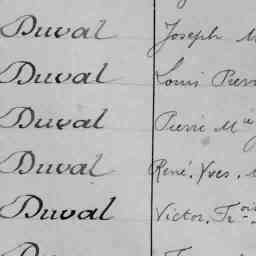 Duval Joseph M
Duval Louis Pierr
Duval Pierre Mie
Duval René, Yves,
Duval Victor, Frois